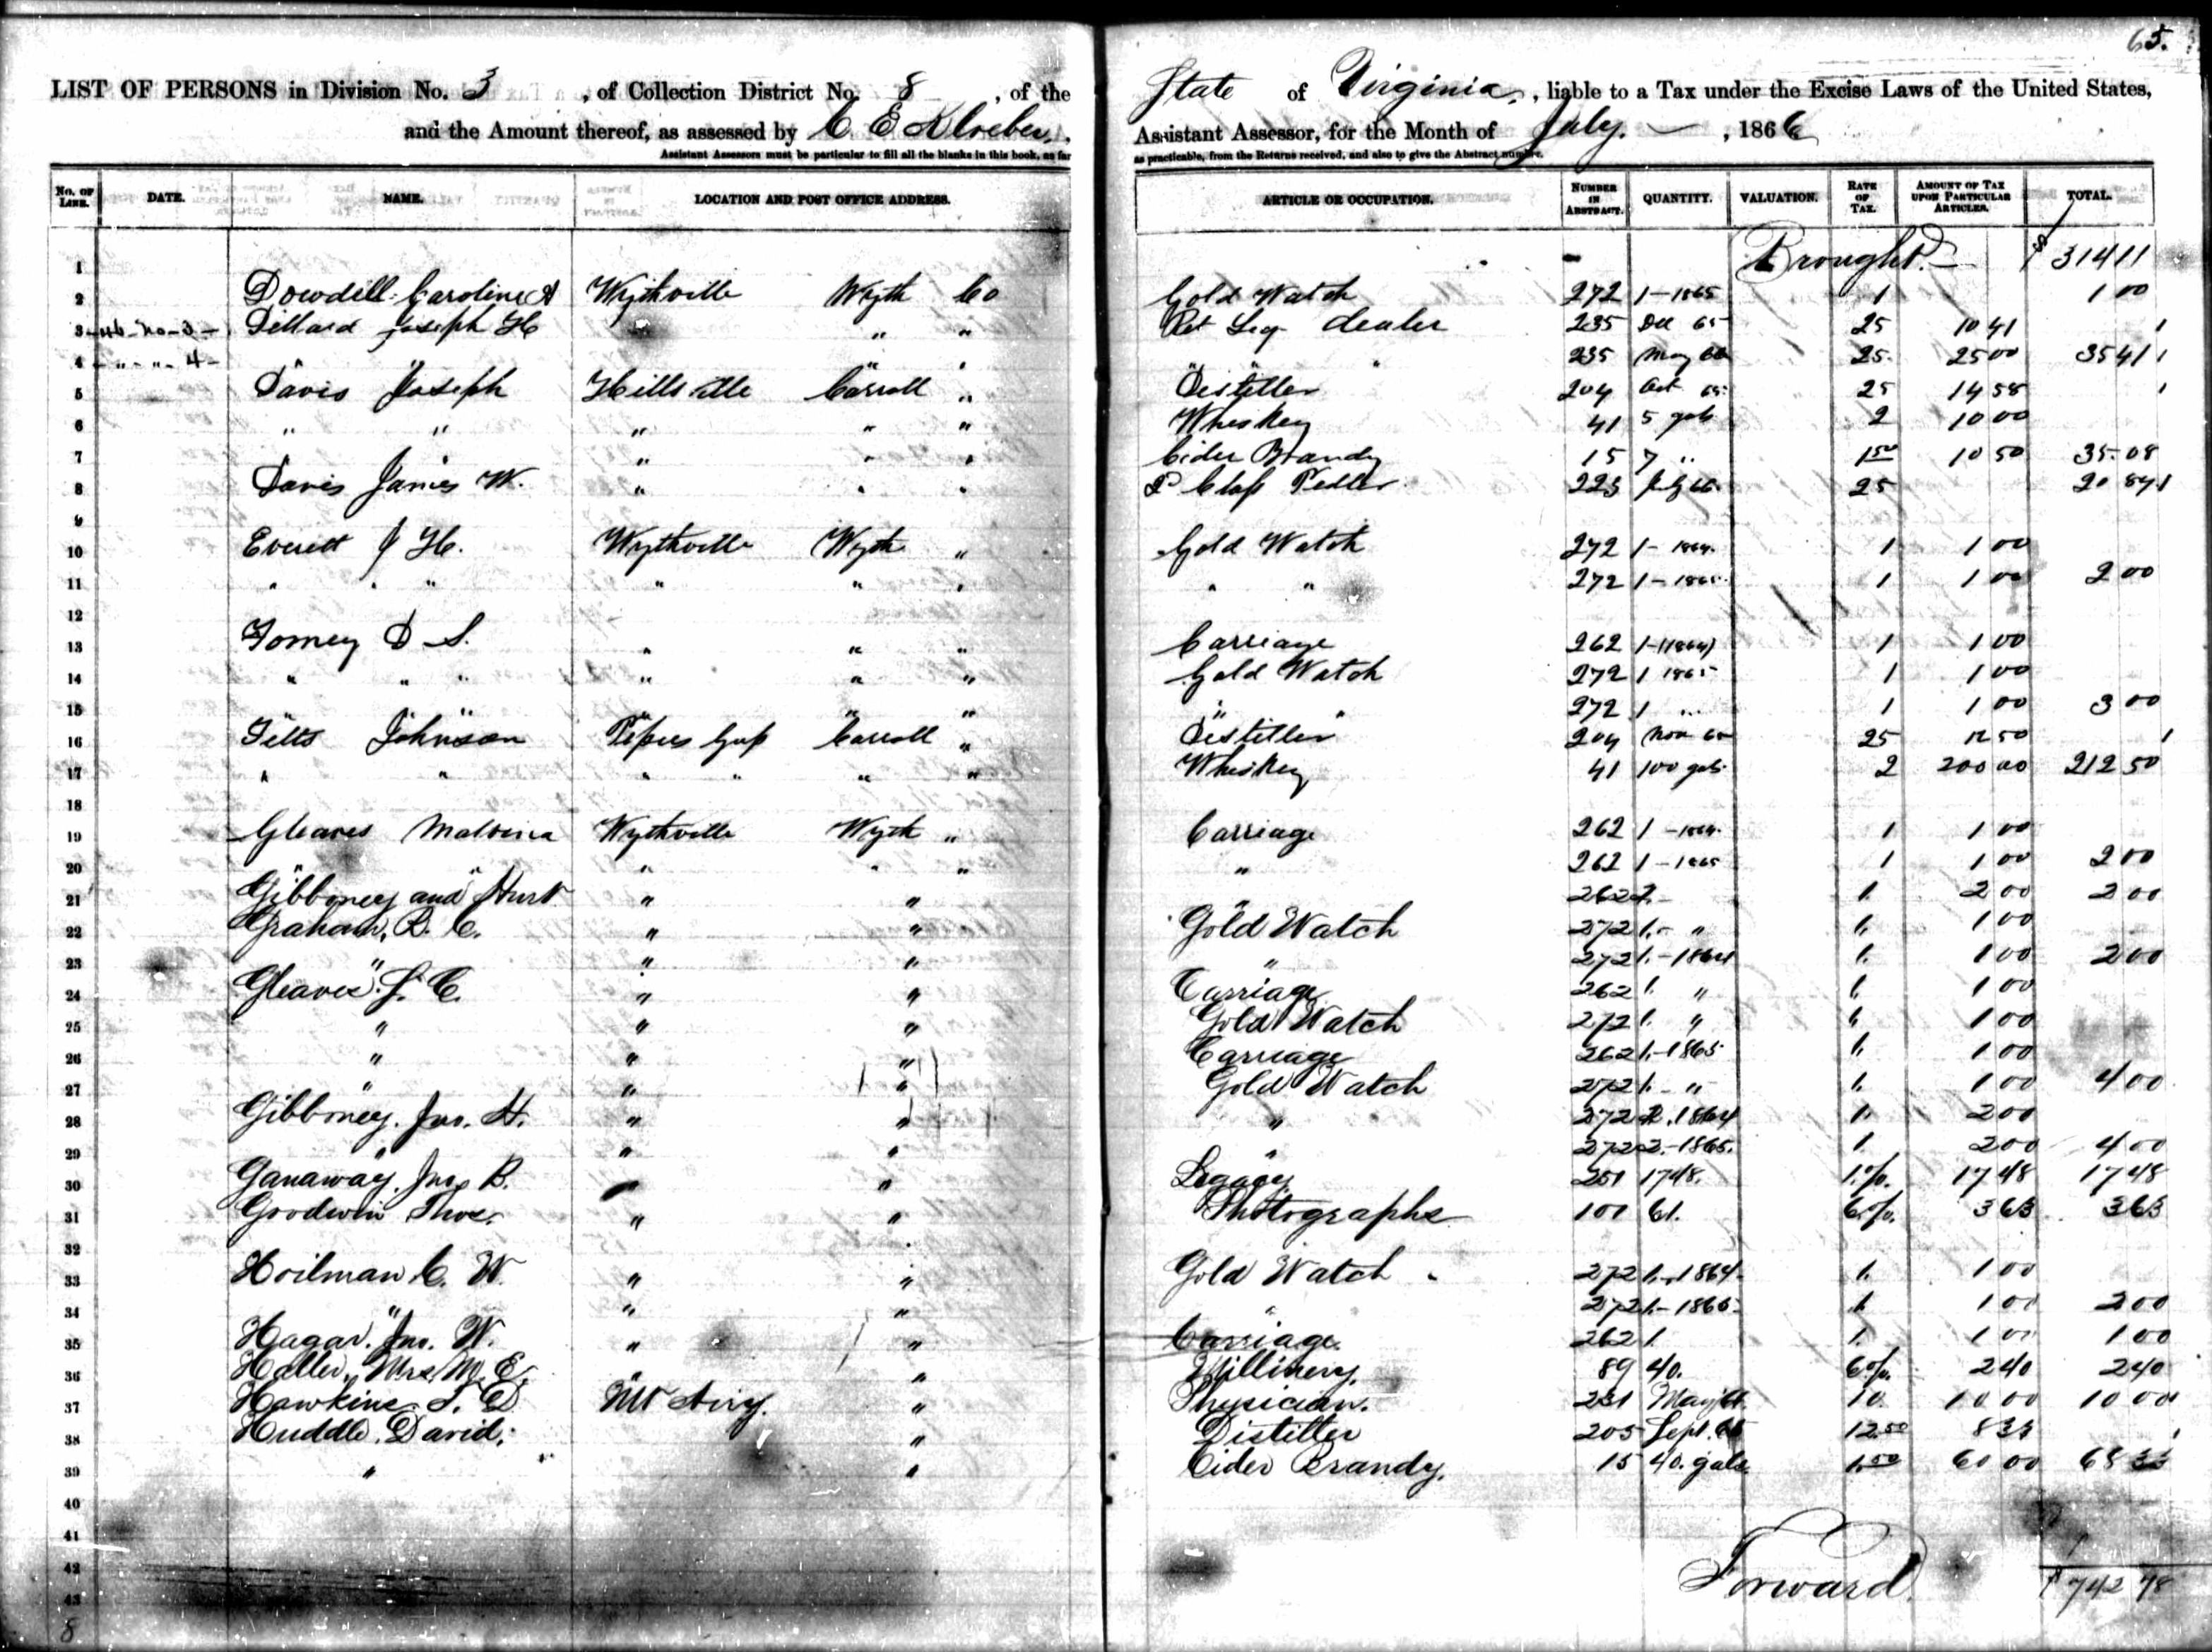 65.
LIST OF PERSONS in Division No. 3, of Collection District No. 8, of the State of Virginia, liable to a Tax under the Excise Laws of the United States,
and the Amount thereof, as assessed by C E Kloeber, Assistant Assessor, for the Month of July, 1866
Assistant Assessors must be particular to fill all the blanks in this book, as far as practicable, from the Returns received, and also to give the Abstract number.
No. OF LINE. DATE. NAME. LOCATION AND POST OFFICE ADDRESS. ARTICLE OR OCCUPATION. NUMBER IN ABSTRACT. QUANTITY. VALUATION. RATE OF TAX. AMOUNT OF TAX UPON PARTICULAR ARTICLES. TOTAL.
1 Brought $ 314 11
2 Dowdell Caroline A Wythville Wyth Co Gold Watch 272 1 - 1865 1 1 00
3 46 - No - 3 - Dillard Joseph H " " Ret Liq dealer 235 Dec 65 25 10 41
4 " - " - 4 - " " " " " 235 May 66 25 25 00 35 41
5 Davis Joseph Hillsville Carroll " Distiller 204 Oct 65 25 14 58
6 " " " " " Whiskey 41 5 gals 2 10 00
7 " " " " " Cider Brandy 15 7 " 1 50 10 50 35 08
8 Davis James W. " " " 2d Class Pedler 223 July 66 25 20 84
9
10 Everett J H. Wythville Wyth " Gold Watch 272 1 - 1864 1 1 00
11 " " " " " " " " 272 1 - 1865 1 1 00 2 00
12
13 Forney D S. " " " Carriage 262 1 - (1864) 1 1 00
14 " " " " " " Gold Watch 272 1 1865 1 1 00
15 " " " " " " " 272 1 " 1 1 00 3 00
16 Felts Johnson Pipers Gap Carroll " Distiller 204 Nov 65 25 12 50
17 " " " " " " Whiskey 41 100 gals 2 200 00 212 50
18
19 Gleaves Malvina Wythville Wyth " Carriage 262 1 - 1864 1 1 00
20 " " " " " " 262 1 - 1865 1 1 00 2 00
21 Gibboney and Hurt " " " 262 2 - 1. 2 00 2 00
22 Graham, R. C. " " Gold Watch 272 1. - " 1. 1 00
23 " " " " 272 1. - 1864 1. 1 00 2 00
24 Gleaves, S. C. " " Carriage 262 1. " 1. 1 00
25 " " " Gold Watch 272 1. " 1. 1 00
26 " " " Carriage 262 1. - 1865 1. 1 00
27 " " " Gold Watch 272 1. - " 1. 1 00 4 00
28 Gibboney, Jno. H. " " " 272 2. 1864 1. 2 00
29 " " " " 272 2. - 1865. 1. 2 00 4 00
30 Ganaway, Jno. B. " " Legacy 251 1748. 1.%. 17 48 17 48
31 Goodwin Thos. " " Photographs 100 61. 6.%. 3 63 3 63
32
33 Hoilman C. W. " " Gold Watch 272 1. - 1864 1. 1 00
34 " " " " 272 1. - 1865 1. 1 00 2 00
35 Hagar, Jno. W. " " Carriage. 262 1. 1. 1 00 1 00
36 Haller, Mrs. M. E. " " Millinery. 89 40. 6%. 2 40 2 40
37 Hawkins, T. D Mt Airy. " Physician. 231 May 66 10. 10 00 10 00
38 Huddle, David. " Distiller 205 Sept. 65 12.50 8 33
39 " " Cider Brandy. 15 40. gals. 1.50 60 00 68 33
40
41
42 Forward $ 742 78
43
8